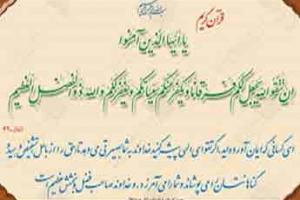 قرآن کریم
یا ایها الذین آمنوا
ان تتقوا الله یجعل لکم فرقانا و یکفر عنکم سیئاتکم و یغفر لکم والله ذو الفضل العظیم
ای کسانی که ایمان آورده‌اید اگر تقوای الهی پیشه کنید خداوند به شما بصیرتی می‌دهد تا حق را از باطل تشخیص دهید
گناهانتان را می‌پوشاند و شما را می‌آمرزد و خداوند صاحب فضل و بخشش عظیم است